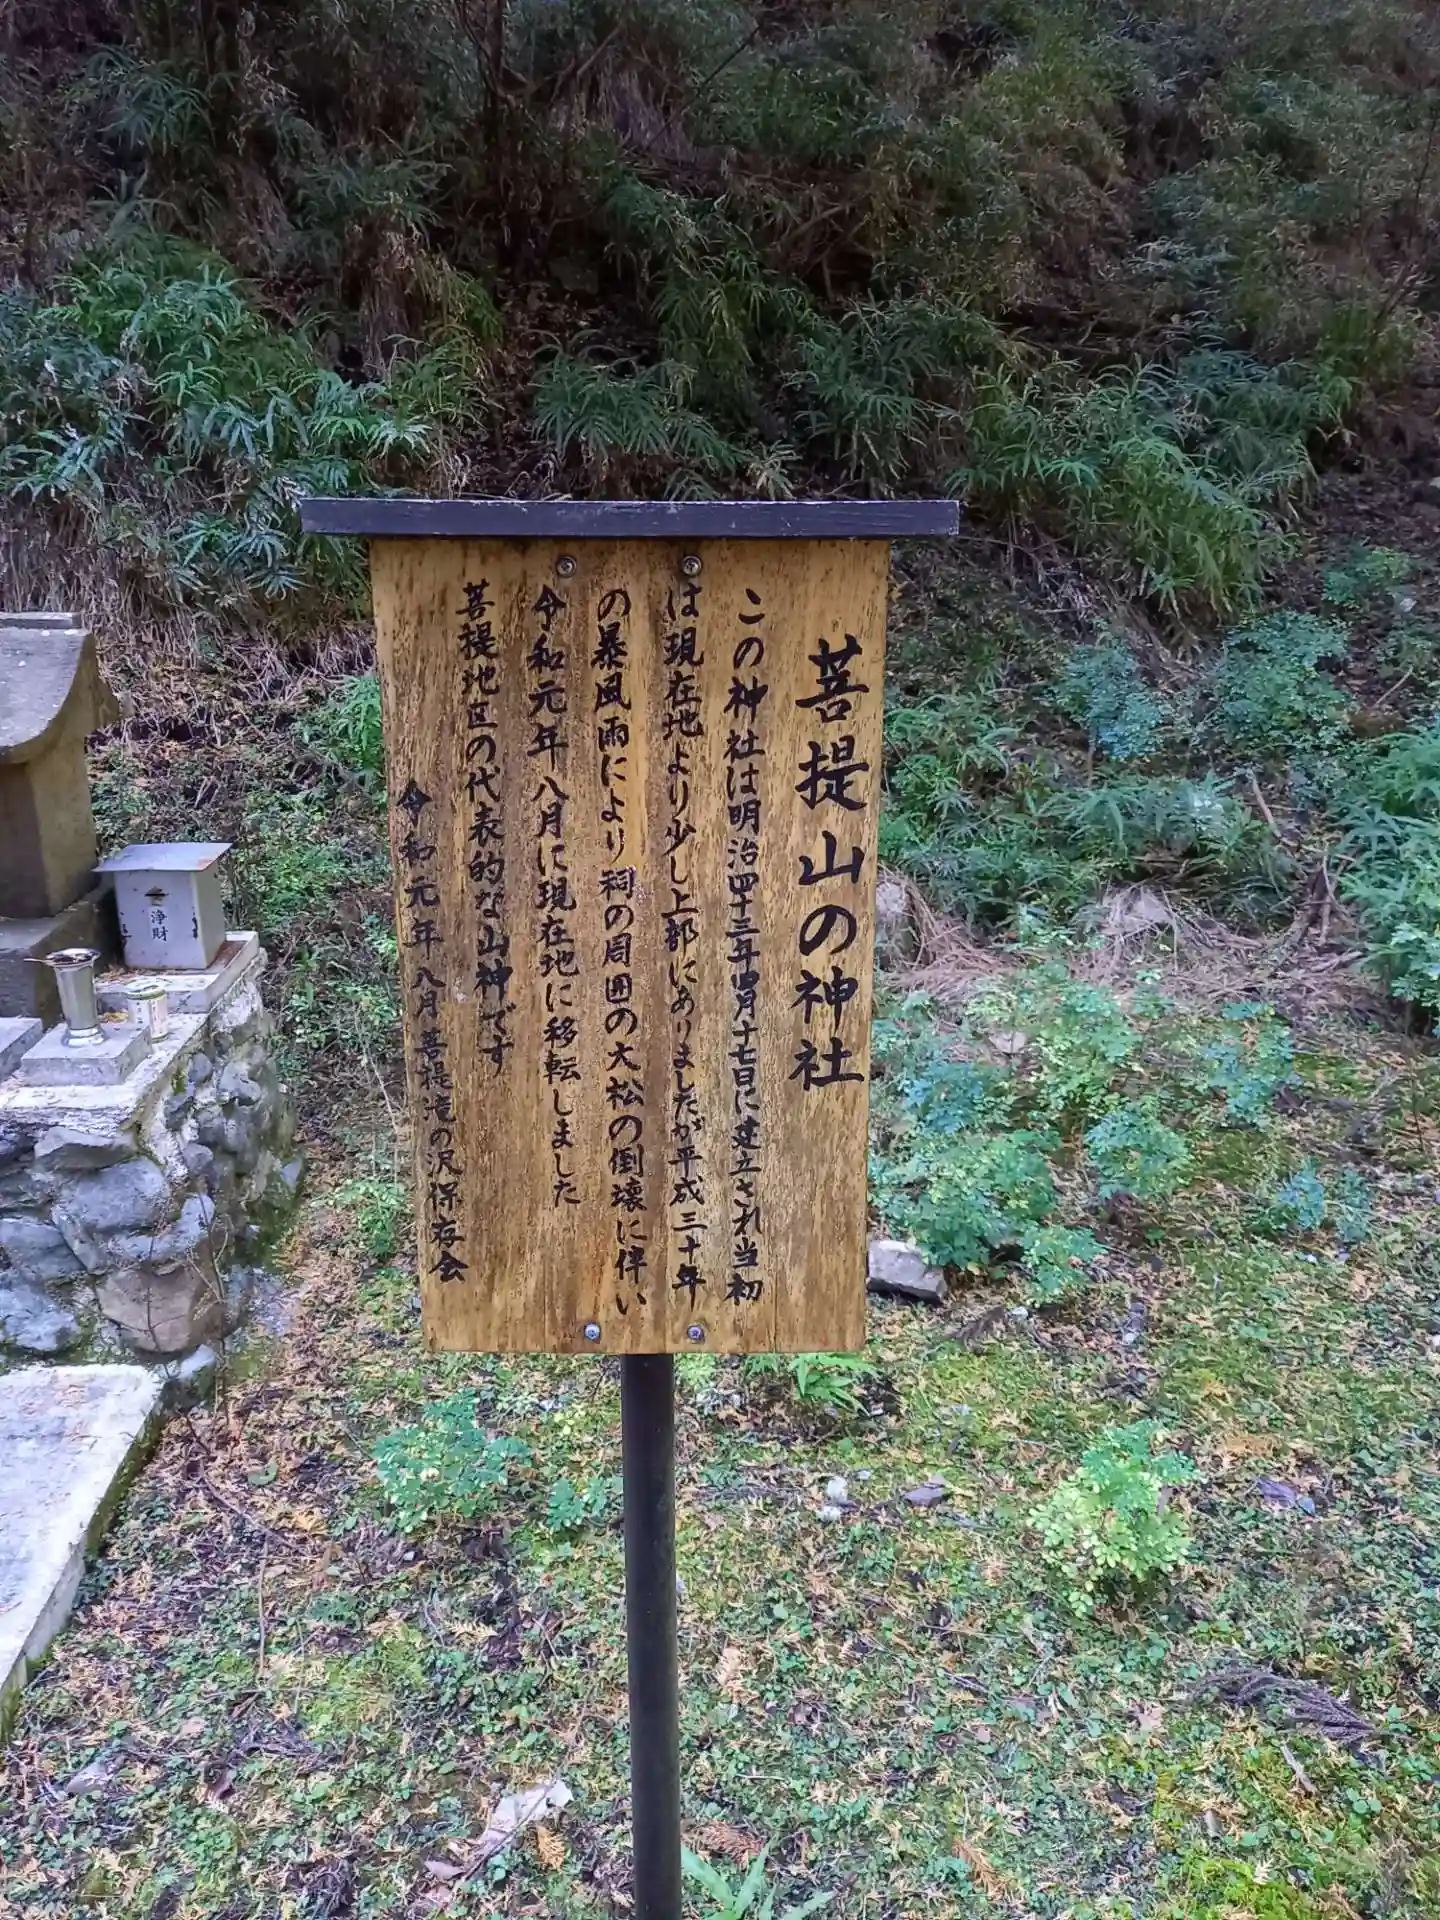 菩提山の神社
この神社は明治四十三年四月十七日に建立され当初
は現在地より少し上部にありましたが平成三十年
の暴風雨により祠の周囲の大松の倒壊に伴い
令和元年八月に現在地に移転しました
菩提地区の代表的な山神です
令和元年八月菩提滝の沢保存会
浄財